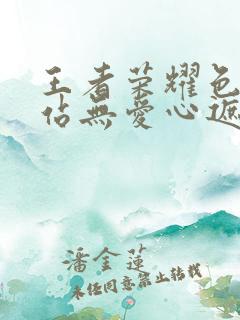 王者荣耀色
佔無愛心遮
潘金蓮
未经同意禁止转载